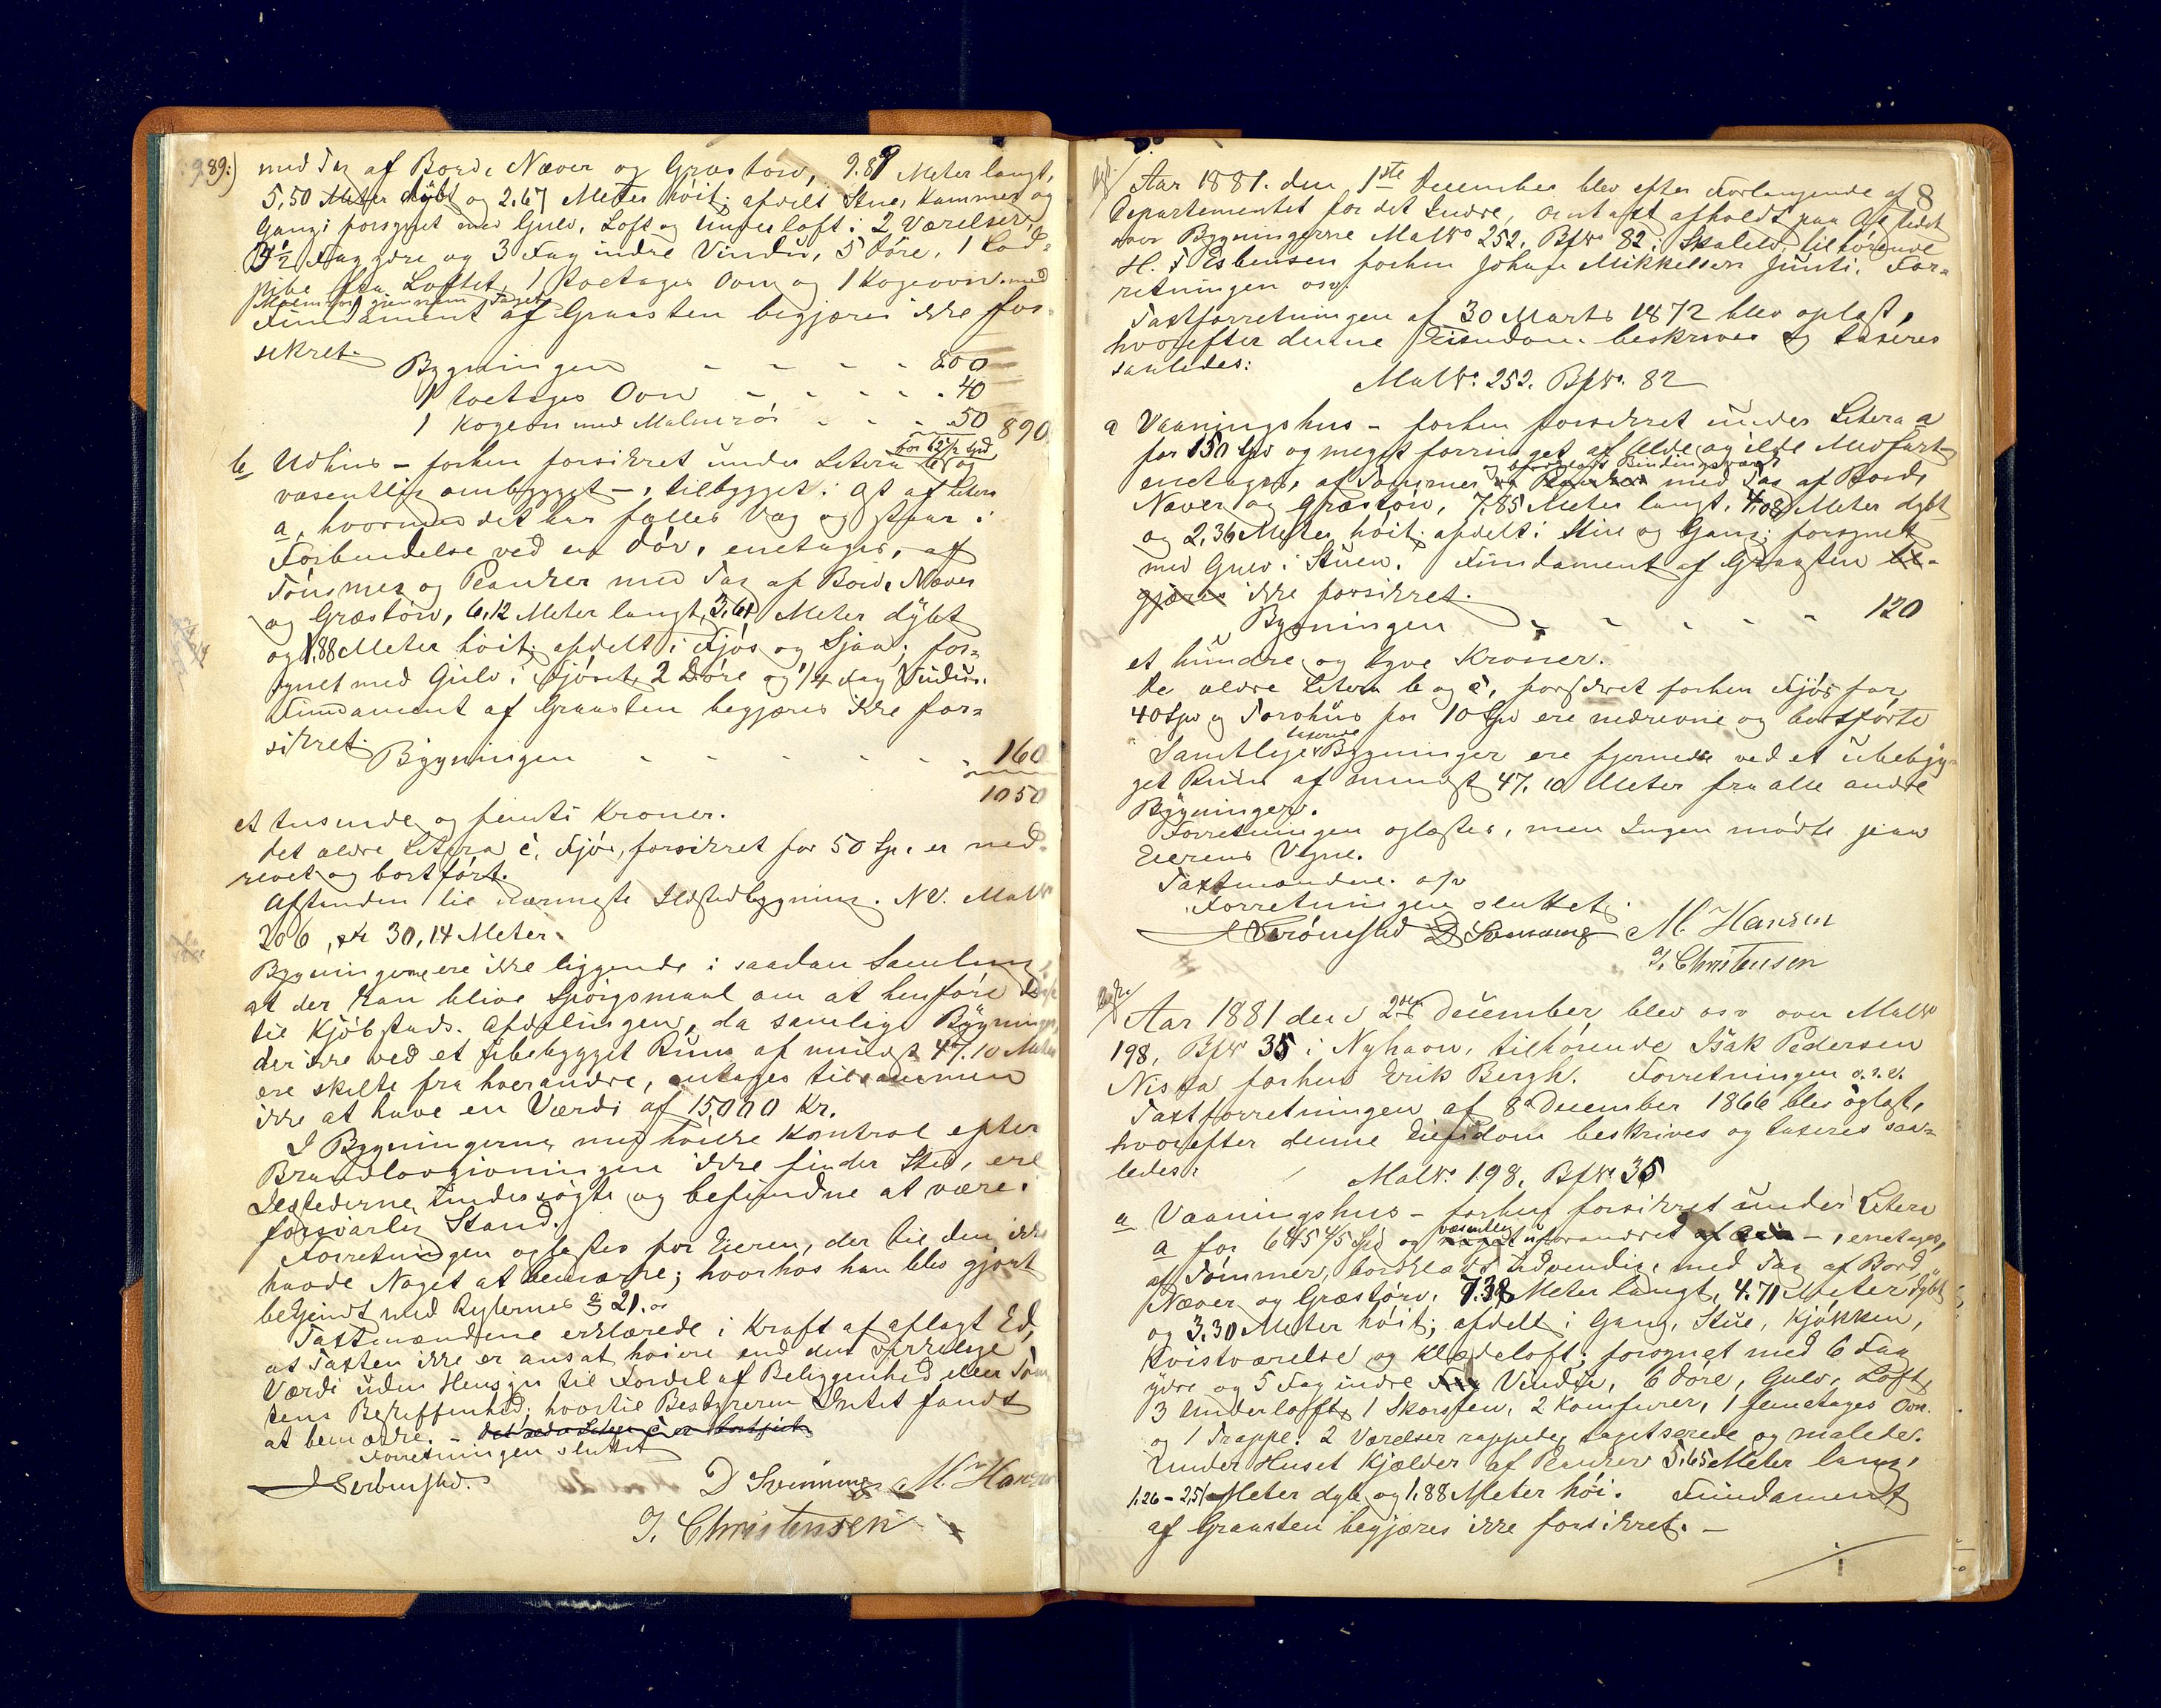 9.89:) med Tag af Bord, Næver og Græstorv, 9.89 Meter langt,
5,50 Meter dybt og 2,67 Meter høit; afdelt i Stue, Kammer og
Gang; forsynet med Gulv, Loft og Underloft i 2 Værelser,
3½ Fag ydre og 3 Fag indre Vindu, 5 Døre, 1
Loftet, 1 toetages Ovn og 1 Kogeovn med
Malmrør gjennem Taget
Fundament af Graasten begjæres ikke for-
sikret.
Bygningen - - - - 800
1 toetages Ovn - - - - 40
1 Kogeovn med Malmrør - - 50 890
for 62½ Spd
b Udhus – forhen forsikret under Litera b og
væsentlig ombygget –, tilbygget i Øst af Litera
a, hvormed det har fælles Væg og staar i
Forbindelse ved en Dør, enetages, af
Tømmer og Planker med Tag af Bord, Næver
og Græstorv, 6,12 Meter langt, 3,61 Meter dybt
og 1.88 Meter høit; afdelt i Fjøs og Sjaa; for-
synet med Gulv i Fjøset, 2 Døre og 1/4 Fag Vindu.
Fundament af Graasten begjæres ikke for-
sikret.
Bygningen - - - - - 160
1050
et tusinde og femti Kroner.
Det ældre Litera c, Fjøs, forsikret for 50 Sp. er ned-
revet og bortført.
Afstanden til nærmeste Ildstedbygning NV. MatNo
206, er 30,14 Meter.
Bygningerne ere ikke liggende i saadan Samling,
at der kan blive Spørgsmaal om at henføre disse
til Kjøbstads-Afdelingen, da samtlige Bygninger,
der ikke ved et ubebygget Rum af mindst 47.10 Meter
ere skilte fra hverandre, antages tilsammen
ikke at have en Værdi af 15000 Kr.
I Bygningerne, med hvilke Kontrol efter
Brandlovgivningen ikke finder Sted, ere
Ildstederne undersøgte og befundne at være i
forsvarlig Stand.
Forretningen oplæstes for Eieren, der til den ikke
havde Noget at bemærke; hvorhos han blev gjort
bekjendt med Reglernes § 21.
Taxtmændene erklærede i Kraft af aflagt Ed,
at Taxten ikke er ansat høiere end den virkelige
Værdi uden Hensyn til Fordel af Beliggenhed eller Tom-
tens Beskaffenhed; hvortil Bestyreren Intet fandt
at bemærke. – Det ældre Litera c er bortført
Forretningen sluttet
D Svenning M. Hansen
T. Christensen
8
Aar 1881. den 1ste December blev efter Forlangende af
Departementet for det Indre, Omtaxt afholdt paa Aastedet
over Bygningerne MatNo 252, BfNo 82 i Skaldv. tilhørende
H. T Esbensen forhen Johan Mikkelsen Junti. For-
retningen osv.
Taxtforretningen af 30 Marts 1872 blev oplæst,
hvorefter denne Eiendom beskrives og taxeres
saaledes:
MatNo. 252. BfNo. 82
a Vaaningshus – forhen forsikret under Litera a
for 150 Spd og meget forringet af Ælde og ilde Medfart –
enetages, af Tømmer og bordklædt Bindingsværk med Tag af Bord,
Næver og Græstorv, 7,85 Meter langt, 4,08 Meter dybt
og 2,36 Meter høit; afdelt i Stue og Gang; forsynet
med Gulv i Stuen. Fundament af Graasten be-
gjæres ikke forsikret.
Bygningen - - - - - 120
et hundre og tyve Kroner.
De ældre Litera b og c, forsikret forhen Fjøs for
40 Spd og Torvhus for 10 Spd ere nedrevne og bortførte
Samtlige Bygninger ere fjernede ved et ubebyg-
get Rum af mindst 47.10 Meter fra alle andre
Bygninger.
Forretningen oplæstes, men Ingen mødte paa
Eierens Vegne.
Taxtmændene. osv
Forretningen sluttet.
D Svenning M. Hansen
T. Christensen
Aar 1881 den 2den December blev osv over MatNo
198, BfNo 35 i Nyhavn, tilhørende Isak Pedersen
Niska forhen Erik Bergh. Forretningen o.s.v.
Taxtforretningen af 8de December 1866 blev oplæst,
hvorefter denne Eiendom beskrives og taxeres saa-
ledes:
MatNo. 198, BfNo. 35
a Vaaningshus – forhen forsikret under Litera
a for 645 4/5 Spd og væsentlig uforandret –, enetages,
af Tømmer, bordklædt udvendig, med Tag af Bord,
Næver og Græstorv, 7.38 Meter langt, 4.71 Meter dybt
og 3,30 Meter høit; afdelt i Gang, Stue, Kjøkken,
Kvistværelse og Klædeloft; forsynet med 6 Fag
ydre og 5 Fag indre Fag Vindu, 6 Døre, Gulv, Loft,
3 Underloft, 1 Skorsten, 2 Komfurer, 1 femetages Ovn.
og 1 Trappe. 2 Værelser rappede, tapetserede og malede.
Under Huset Kjælder af Planker 5,65 Meter lang,
1,26 – 2,51 Meter dyb og 1,88 Meter høi. Fundament
af Graasten begjæres ikke forsikret. –